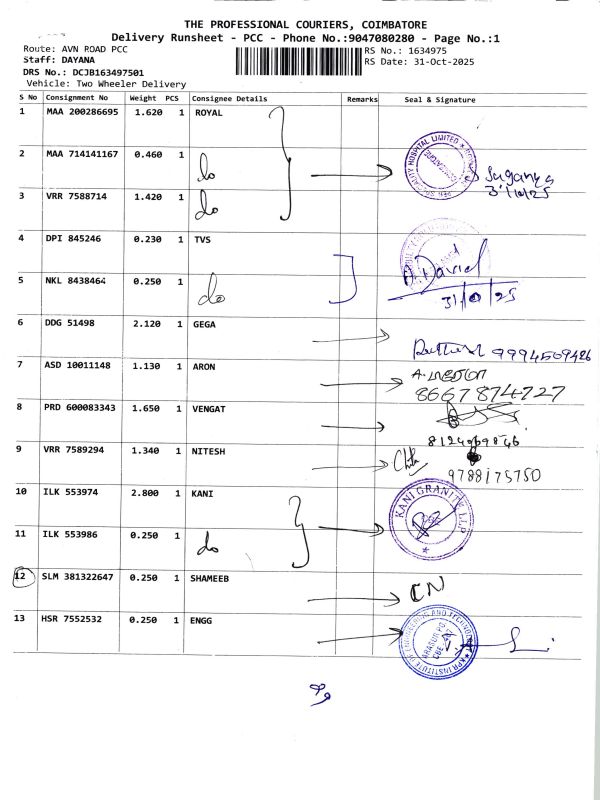 THE PROFESSIONAL COURIERS, COIMBATORE
Delivery Runsheet - PCC - Phone No.:9047080280 - Page No.:1
Route: AVN ROAD PCC
RS No.: 1634975
Staff: DAYANA
RS Date: 31-Oct-2025
DRS No.: DCJB163497501
Vehicle: Two Wheeler Delivery
S No Consignment No Weight PCS Consignee Details Remarks Seal & Signature
1 MAA 200286695 1.620 1 ROYAL
2 MAA 714141167 0.460 1 do
Suganya
31/10/25
3 VRR 7588714 1.420 1 do
4 DPI 845246 0.230 1 TVS
A. David
5 NKL 8438464 0.250 1 do
31/10/25
6 DDG 51498 2.120 1 GEGA
9994509426
7 ASD 10011148 1.130 1 ARON
8667874727
8 PRD 600083343 1.650 1 VENGAT
8124969846
9 VRR 7589294 1.340 1 NITESH
9788175750
10 ILK 553974 2.800 1 KANI
KANI GRANITE LLP
11 ILK 553986 0.250 1 do
12 SLM 381322647 0.250 1 SHAMEEB
CN
13 HSR 7552532 0.250 1 ENGG
KPR INSTITUTE OF ENGINEERING AND TECHNOLOGY
ARASUR PO.
CBE